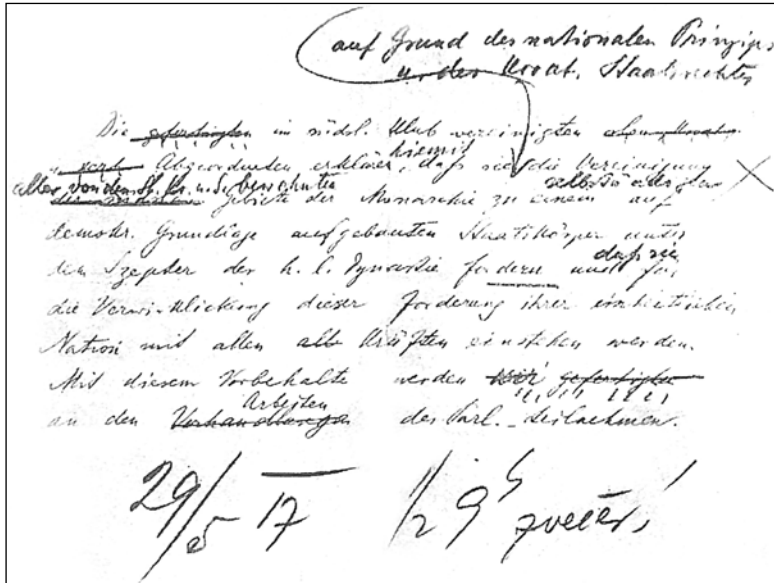 auf Grund des nationalen Prinzips
u. des kroat. Staatsrechtes
Die gefertigten im südsl. Klub vereinigten
Abgeordneten erklären hiemit, daß sie die Vereinigung
aller von den Sl. Kr. u. S. bewohnten Gebiete der Monarchie zu einem selbständigen auf
demokr. Grundlage aufgebauten Staatskörper unter
dem Szepter der h. l. Dynastie fordern und daß sie für
die Verwirklichung dieser Forderung ihrer einheitlichen
Nation mit allen alle Kräften einstehen werden.
Mit diesem Vorbehalte werden wir gefertigte
an den Verhandlungen Arbeiten des Parl. teilnehmen.
29/5 17 1/2 9h zvečer